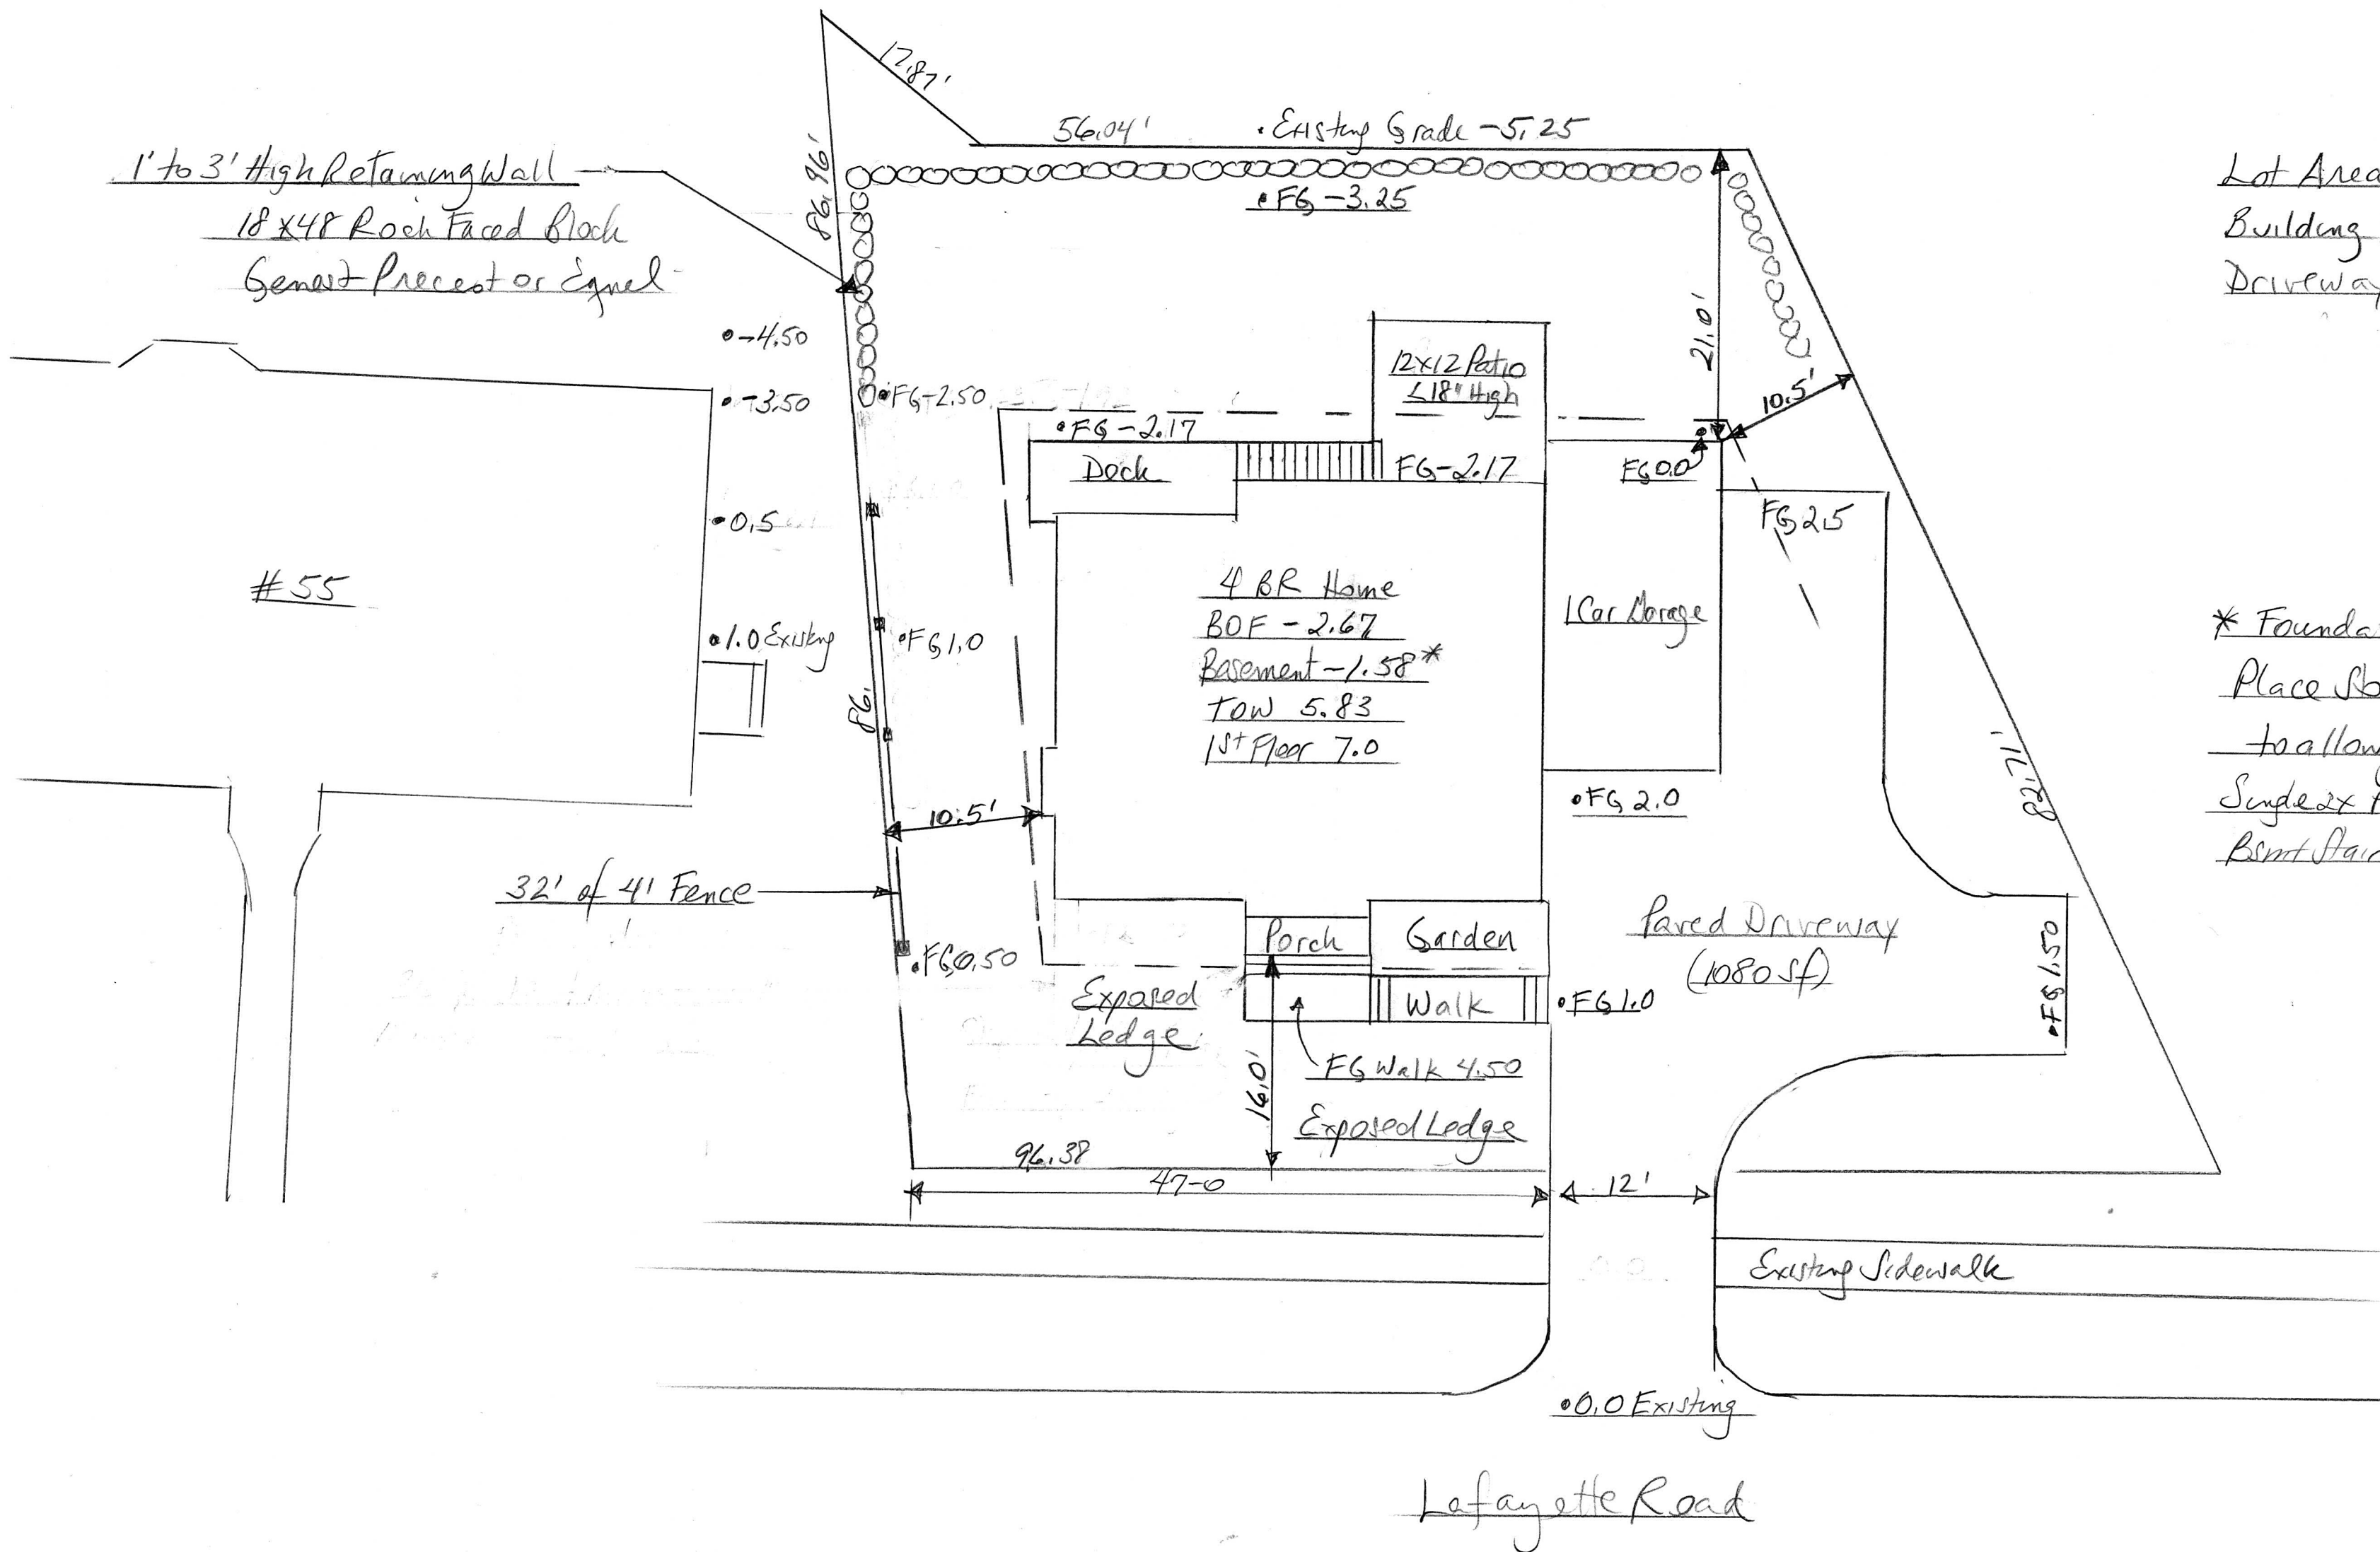 17.87'
56.04'
• Existing Grade -5.25
86.96'
1' to 3' High Retaining Wall
18x48 Rock Faced Block
Genest Precast or Equal
• FG -3.25
Lot Area
Building
Driveway
• -4.50
• -3.50
• FG -2.50
12x12 Patio
≤18" High
21.0'
10.5'
• FG -2.17
Deck
FG -2.17
FG 0.0
FG 2.5
• 0.5
# 55
4 BR Home
BOF - 2.67
Basement -1.58*
TOW 5.83
1st Floor 7.0
1 Car Garage
• 1.0 Existing
• FG 1.0
86.
* Founda
Place
to allow
Single 2x
Bsmt Stair
82.71'
• FG 2.0
10.5'
32' of 4' Fence
Porch
Garden
Paved Driveway
(1080 sf)
• FG 0.50
Exposed
Ledge
Walk
• FG 1.0
• FG 1.50
FG Walk 4.50
16.0'
Exposed Ledge
96.38
47-0
12'
Existing Sidewalk
• 0.0 Existing
Lafayette Road